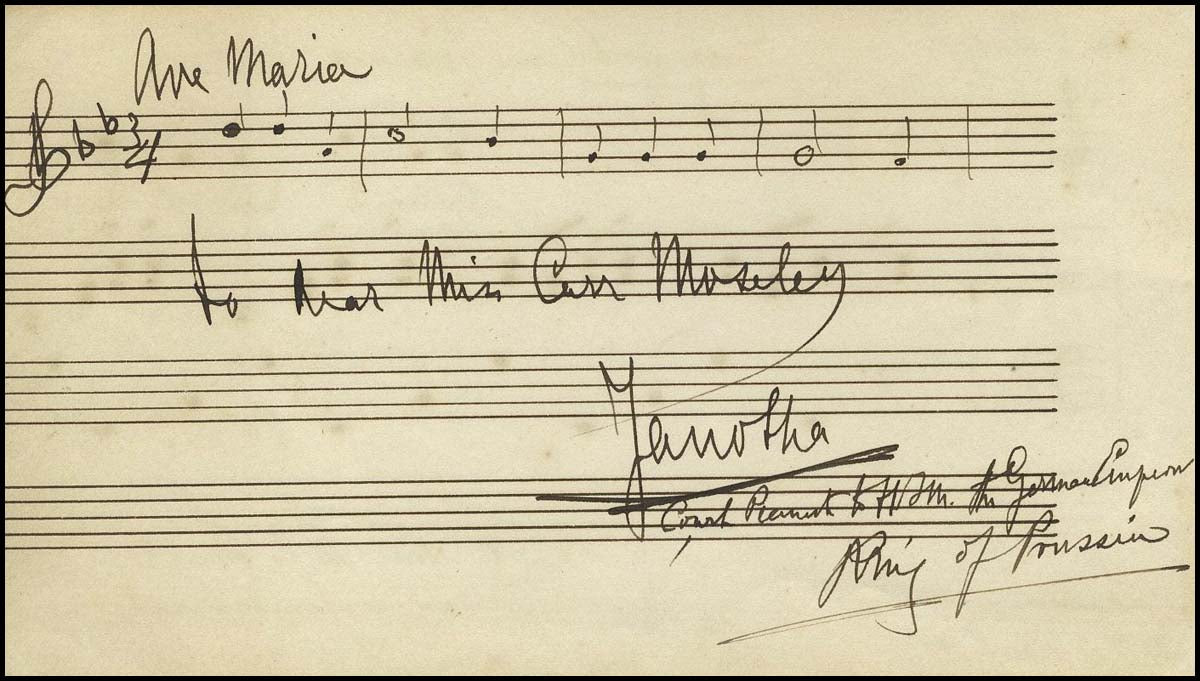 Ave Maria
3/4
to dear Miss Carr Moseley
Janotha
Court Pianist to H.I.M. the German Emperor
King of Prussia